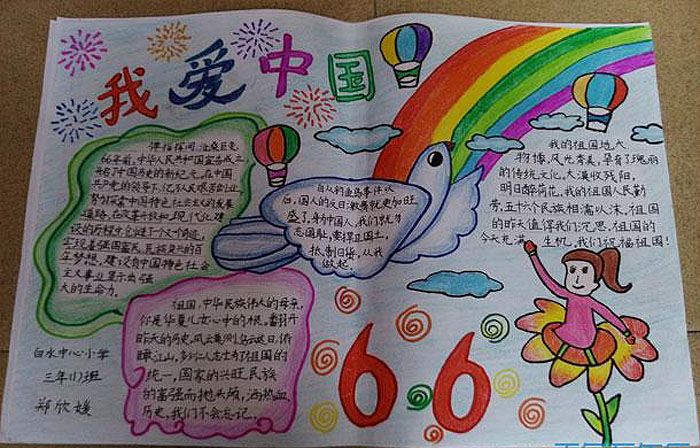 我爱中国
弹指挥间,沧桑巨变,
66年前,中华人民共和国宣告成立
开启了中国历史的新纪元。在中国
共产党的领导下,亿万人民艰苦创业,
努力探索中国特色社会主义的发展
道路,在改革开放和现代化建
设的历程中创造了一个又一个奇迹,
实现着强国富民、民族复兴的百
年梦想。建设有中国特色社会
主义事业显示出强
大的生命力。
自从钓鱼岛事件以
后,国人的反日激情就更加旺
盛了。身为中国人,我们就为
志国耻,索捍卫国土。
抵制日货,从我
做起。
我的祖国地大
物博,风光秀美,孕育了瑰丽
的传统文化。大漠收残阳,
明月醉荷花。我的祖国人民勤
劳,五十六个民族相濡以沫。祖国
的昨天值得我们沉思。祖国的
今天充满生机,我们祝福祖国!
祖国,中华民族伟大的母亲,
你是华夏儿女心中的根。翻开
昨天的历史,风云变测乌云遮日,俯
瞰江山,多少仁人志士为祖国的
统一,国家的兴旺民族
的富强而抛头颅,洒热血,
历史,我们不会忘记。
白水中心小学
三年(1)班
郑欣媛
66